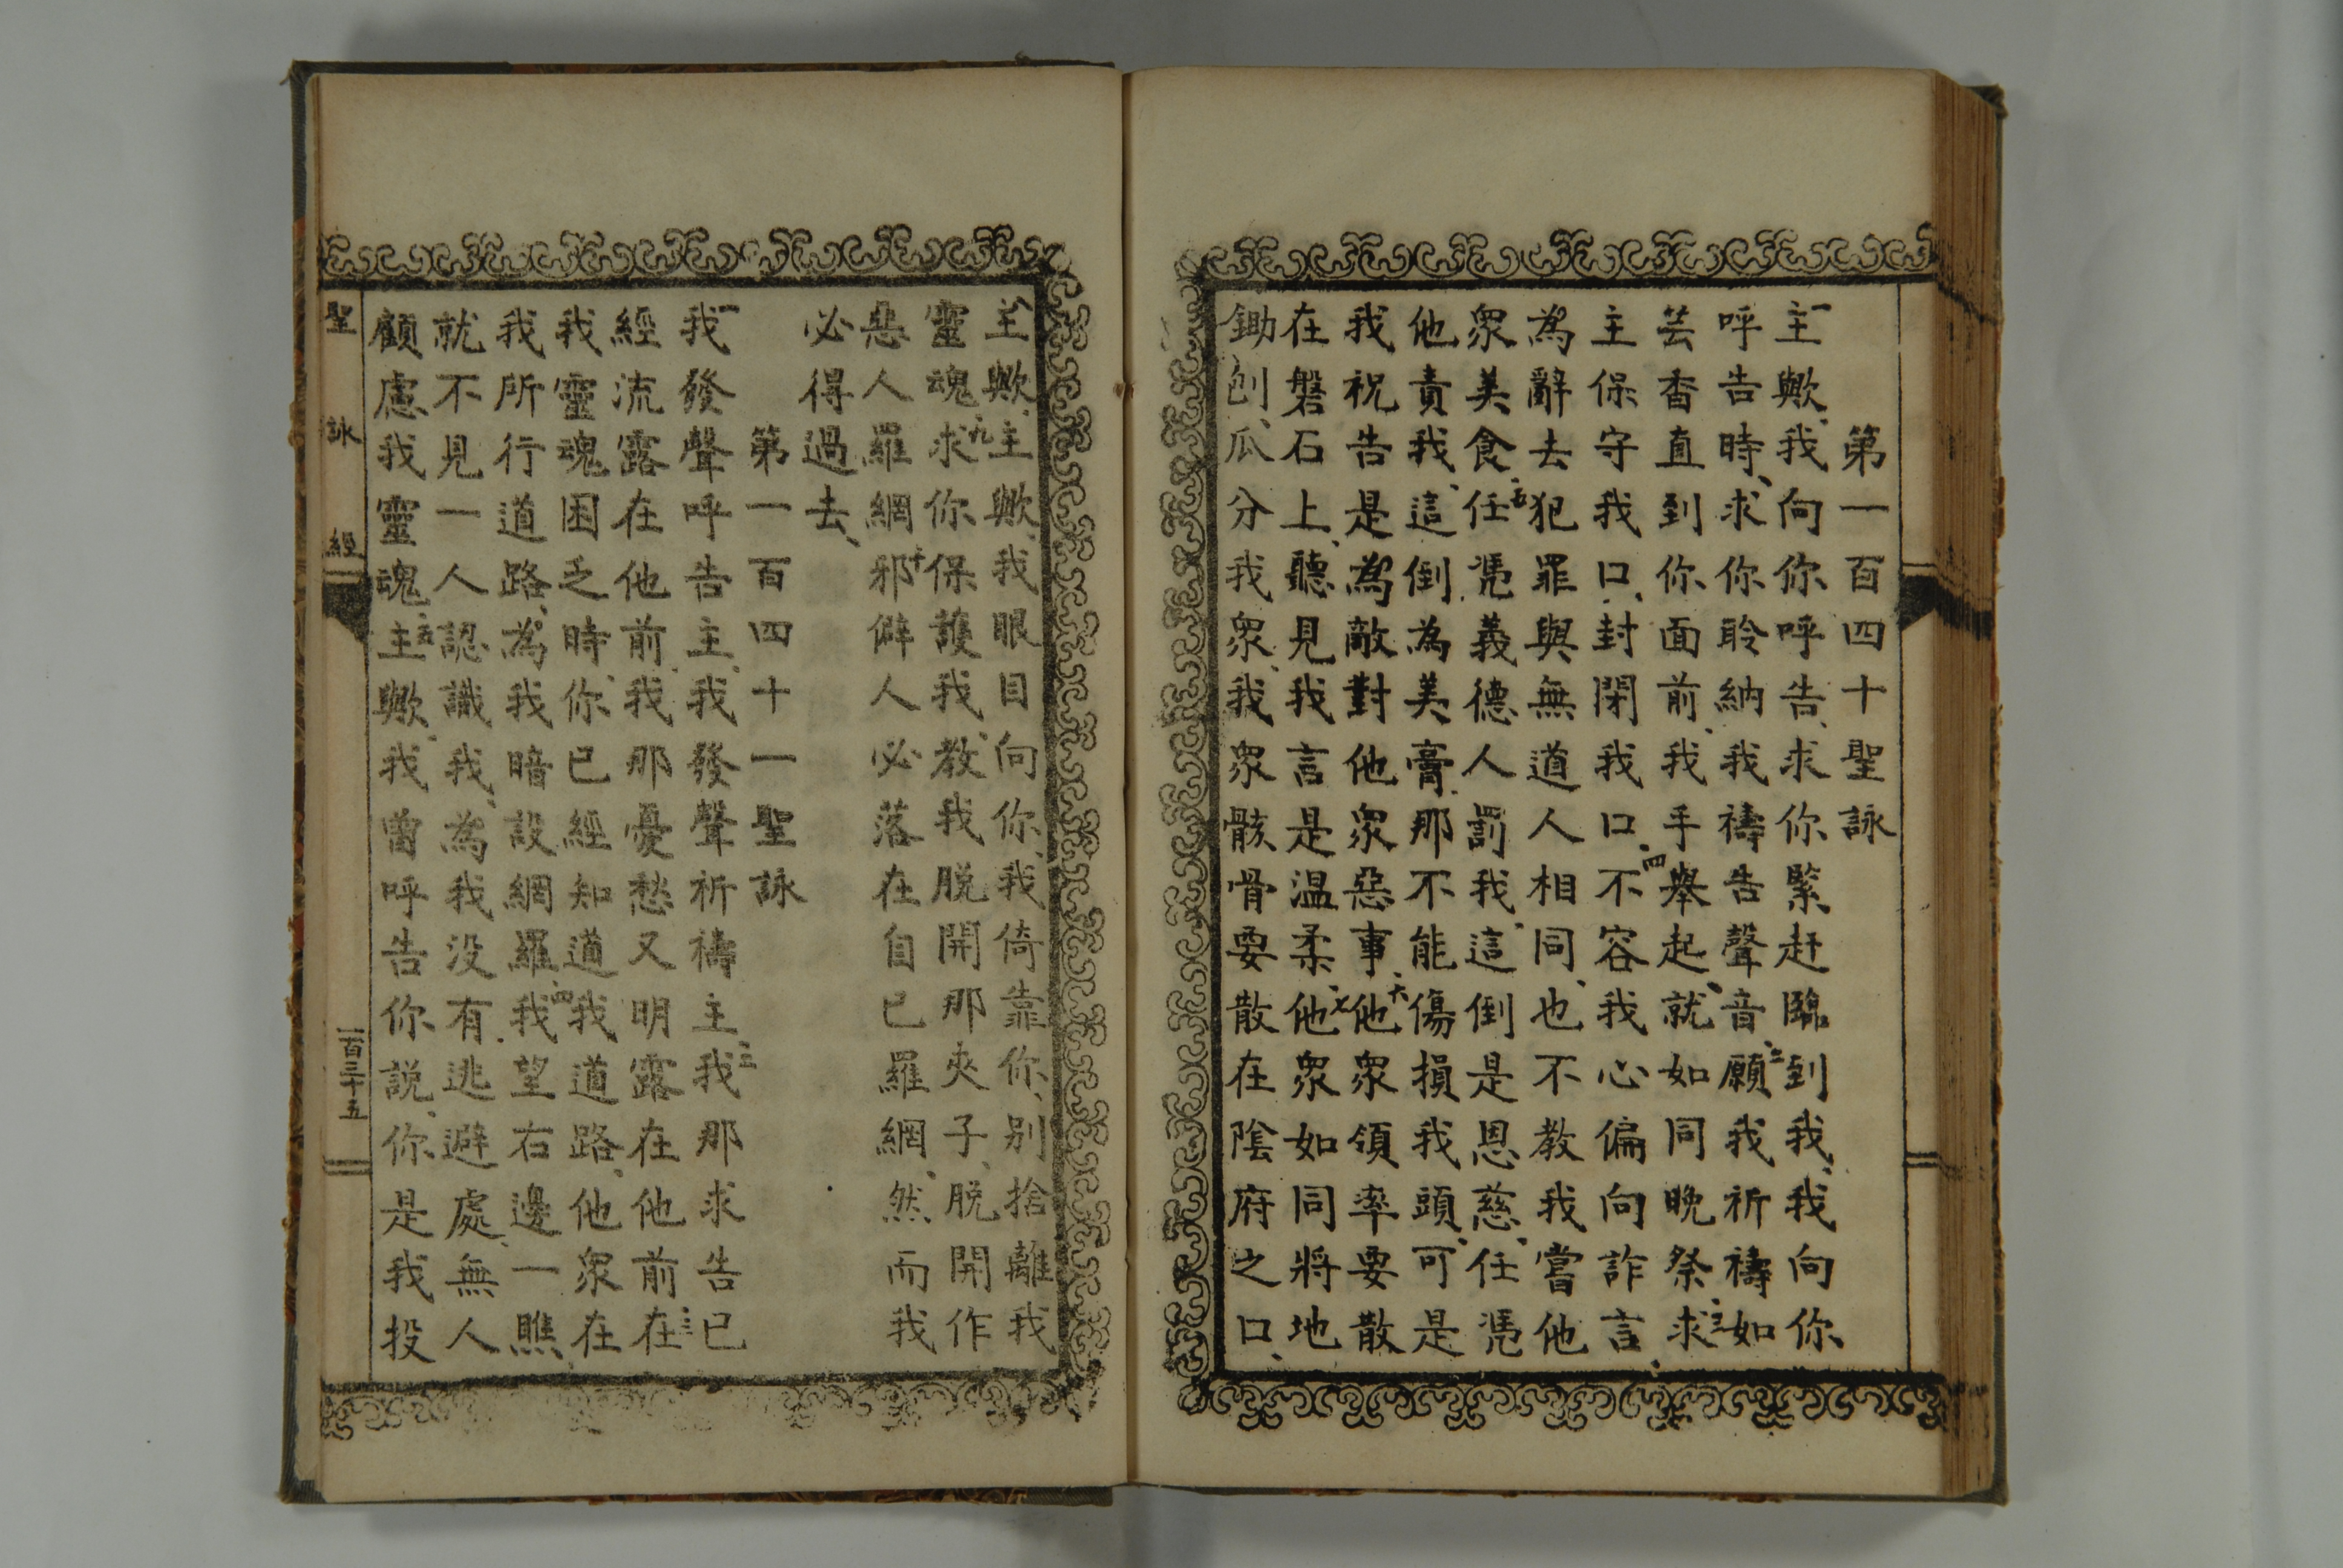 第一百四十聖詠
一主歟、我向你呼告、求你緊赶臨到我、我向你
呼告時、求你聆納我禱告聲音、二願我祈禱如
芸香直到你面前、我手舉起、就如同晚祭、三求
主保守我口、封閉我口、四不容我心偏向詐言、
為辭去犯罪與無道人相同、也不教我嘗他
衆美食、五任憑義德人罰我、這倒是恩慈、任憑
他責我、這倒為美膏、那不能傷損我頭、可是
我祝告是為敵對他衆惡事、六他衆領率要散
在磐石上、聽見我言是温柔、七他衆如同將地
鋤刨、瓜分我衆、我衆骸骨要散在陰府之口、
八主歟、主歟、我眼目向你、我倚靠你、别捨離我
靈魂、九求你保護我、教我脱開那夾子、脱開作
惡人羅網、十邪僻人必落在自己羅網、然而我
必得過去、
第一百四十一聖詠
一我發聲呼告主、我發聲祈禱主、二我那求告已
經流露在他前、我那憂愁又明露在他前、三在
我靈魂困乏時、你已經知道我道路、他衆在
我所行道路、為我暗設網羅、四我望右邊一瞧、
就不見一人認識我、為我没有逃避處、無人
顧慮我靈魂、五主歟、我曾呼告你説、你是我投
聖詠經
一百三十五